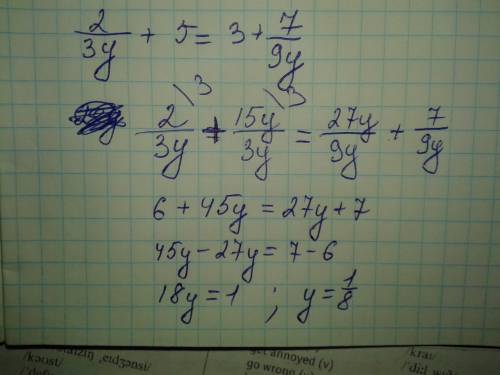 2/3y + 5 = 3 + 7/9y
2/3y \3 + 15y/3y \3 = 27y/9y + 7/9y
6 + 45y = 27y + 7
45y - 27y = 7 - 6
18y = 1 ; y = 1/8
get annoyed (v)
/kəʊst/ go wrong (v)